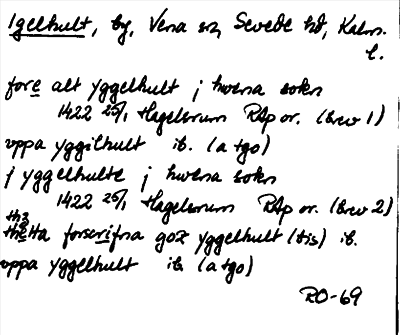 Igelhult, by, Vena sn, Sevede hd, Kalm. l.
fore alt yggelhult j hwena sokn
1422 25/1 Hagelsrum RAp or. (brev 1)
vppa yggilhult ib. (a tgo)
j yggelhulte j hwena sokn
1422 25/1 Hagelsrum RAp or. (brev 2)
thetta forscrifna goz yggelhult (tis) ib.
vppa yggelhult ib (a tgo)
RO-69